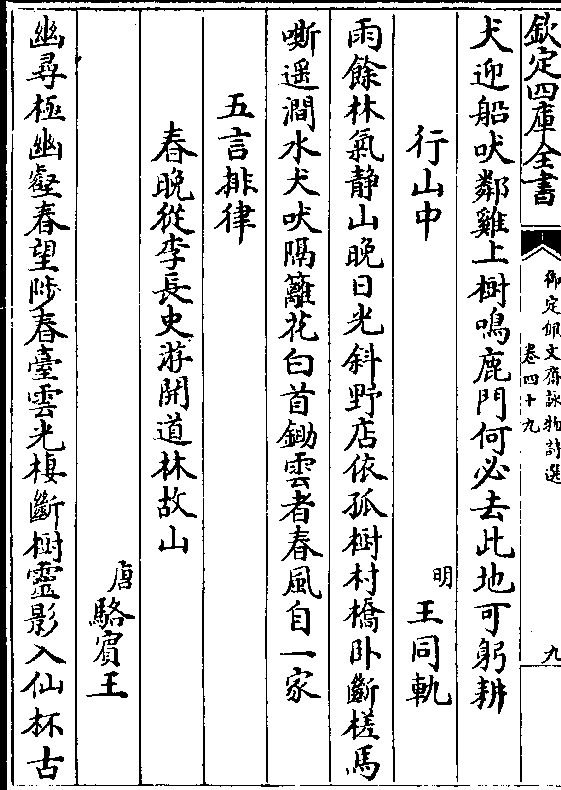 欽定四庫全書
御定佩文齋詠物詩選
卷四十九
九
犬迎船吠鄰雞上樹鳴鹿門何必去此地可躬耕
行山中
明
王同軌
雨餘林氣静山晚日光斜野店依孤樹村橋卧斷槎馬
嘶遥澗水犬吠隔籬花白首鋤雲者春風自一家
五言排律
春晚從李長史游開道林故山
唐
駱賓王
幽尋極幽壑春望陟春臺雲光棲斷樹靈影入仙杯古